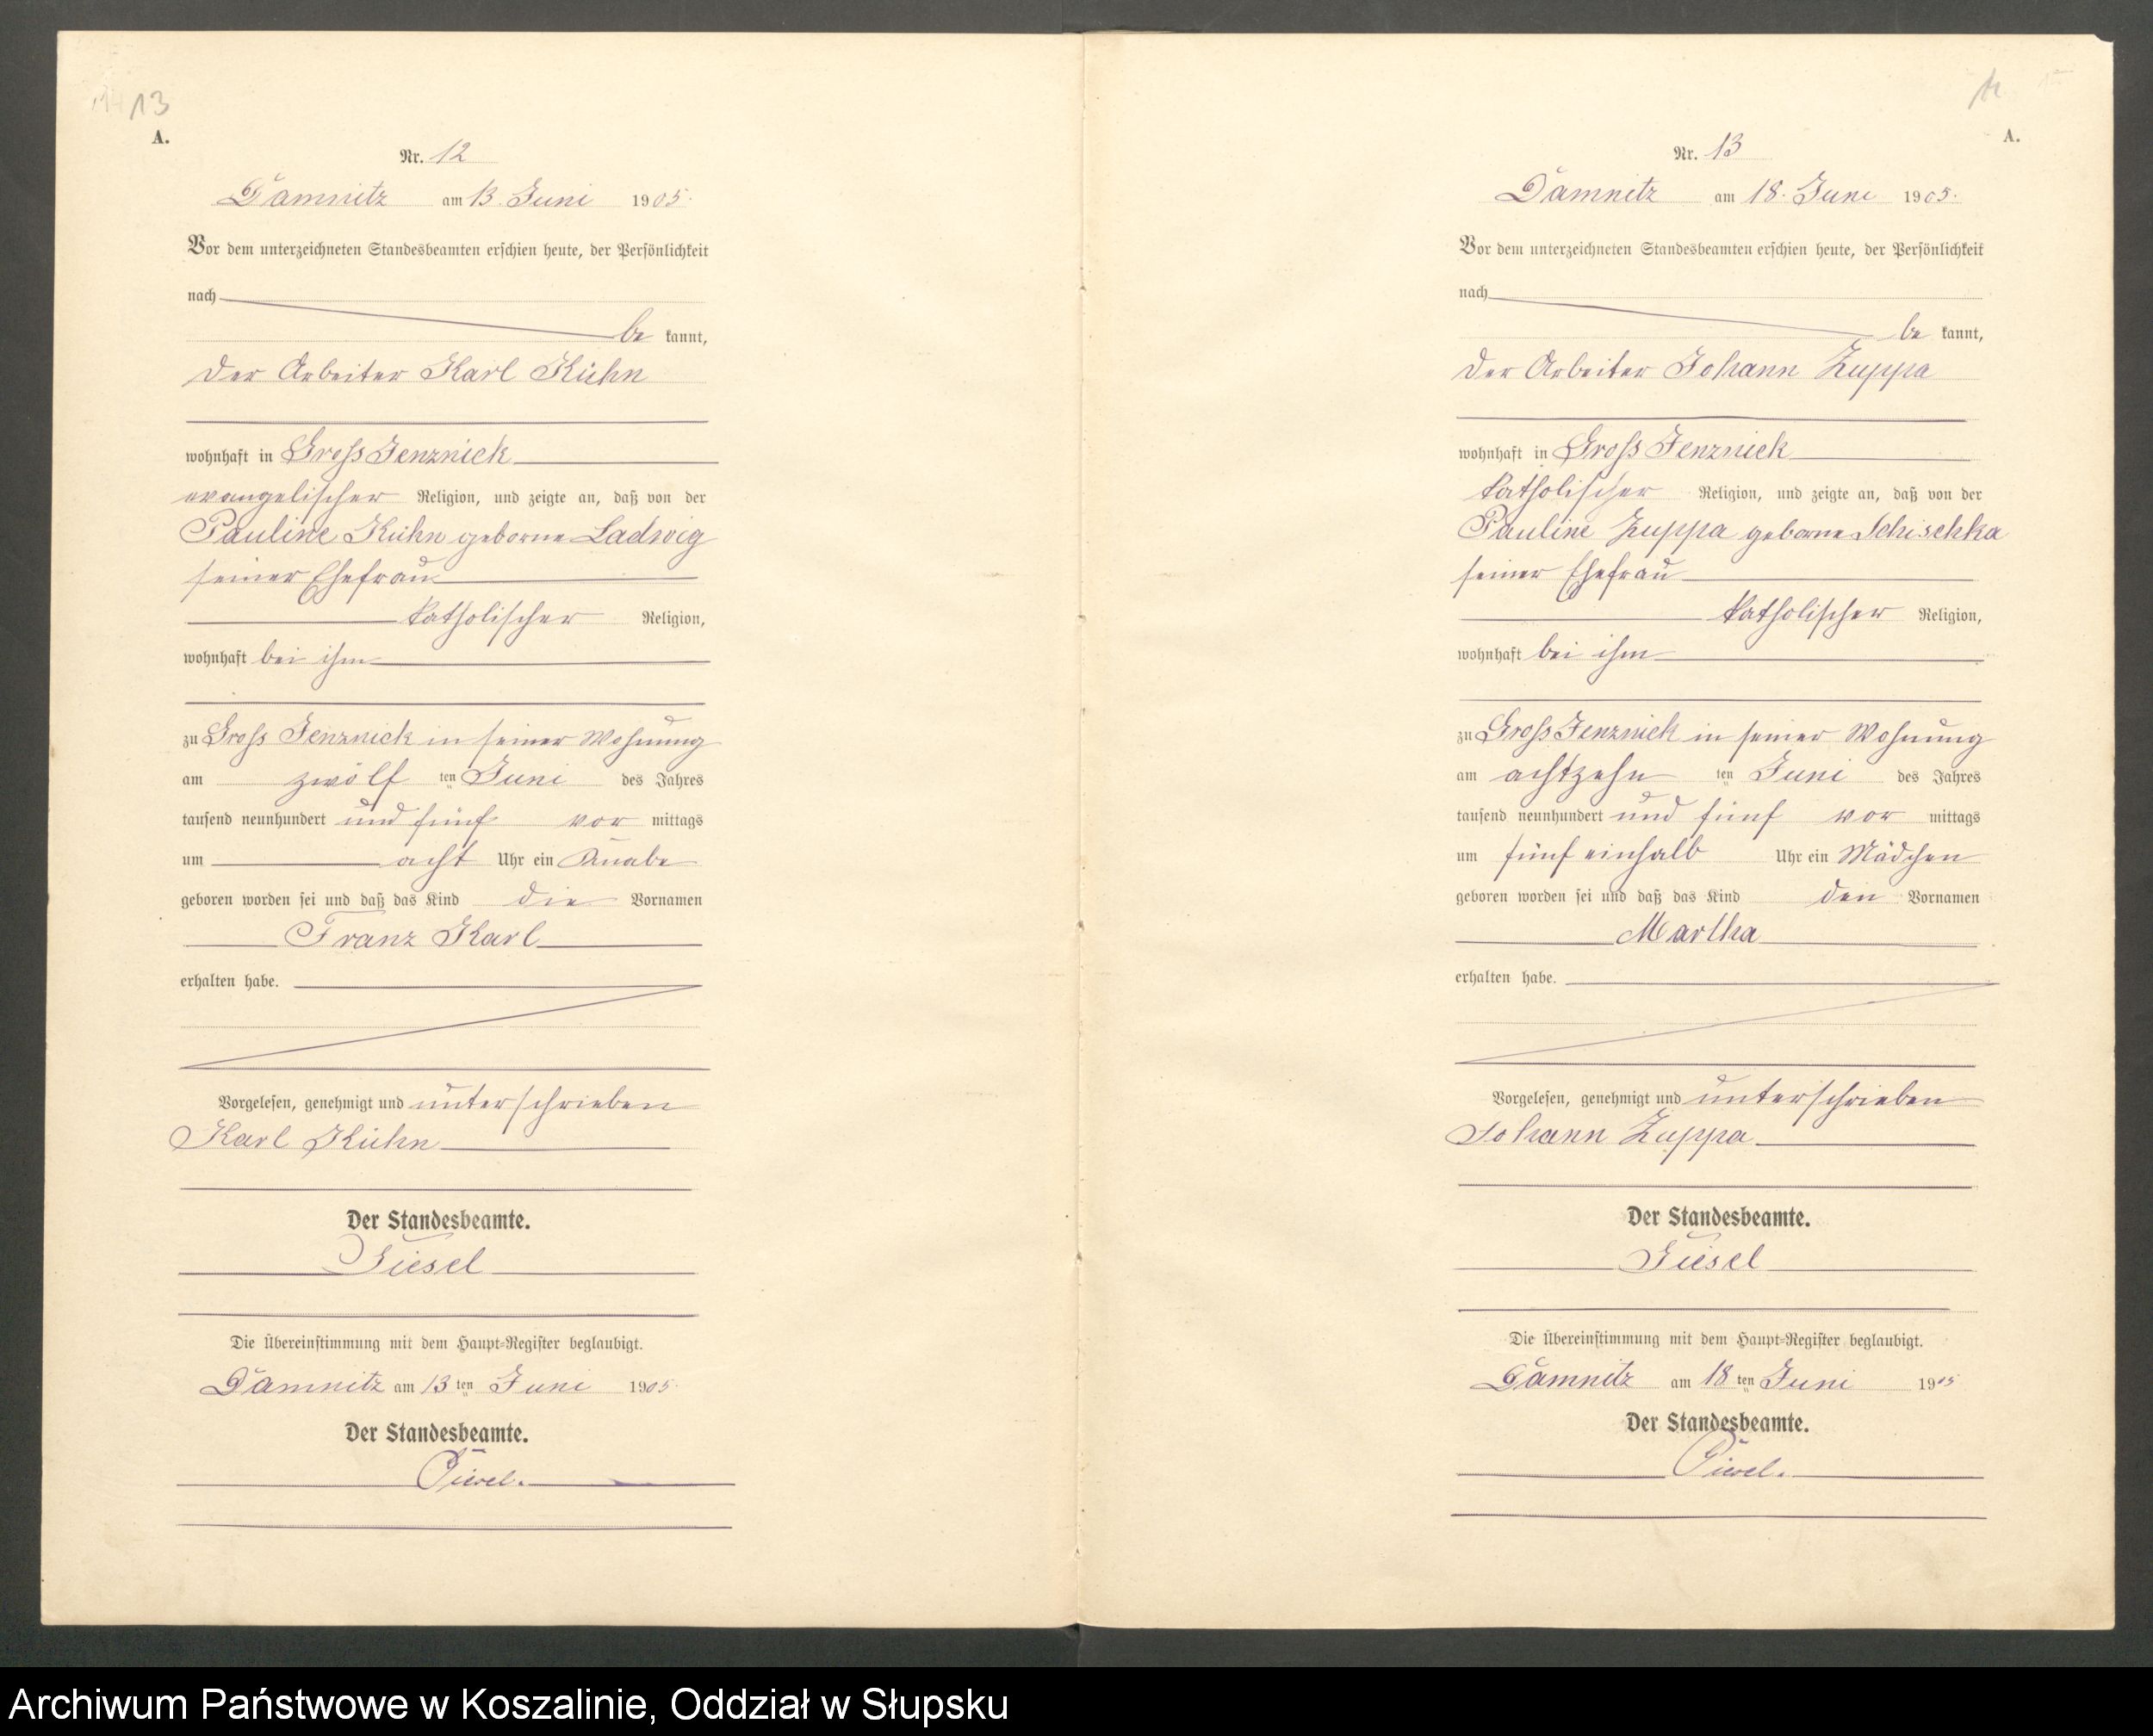 13
A.
Nr. 12
Damnitz am 13. Juni 1905.
Vor dem unterzeichneten Standesbeamten erschien heute, der Persönlichkeit
nach
be kannt,
der Arbeiter Karl Kühn
wohnhaft in Gross Jenznick
evangelischer Religion, und zeigte an, daß von der
Pauline Kühn geborne Ladwig
seiner Ehefrau
katholischer Religion,
wohnhaft bei ihm
zu Gross Jenznick in seiner Wohnung
am zwölf ten Juni des Jahres
tausend neunhundert und fünf vor mittags
um acht Uhr ein Knabe
geboren worden sei und daß das Kind die Vornamen
Franz Karl
erhalten habe.
Vorgelesen, genehmigt und unterschrieben
Karl Kühn
Der Standesbeamte.
Giesel
Die Übereinstimmung mit dem Haupt-Register beglaubigt.
Damnitz am 13 ten Juni 1905.
Der Standesbeamte.
Giesel.
A.
Nr. 13
Damnitz am 18. Juni 1905.
Vor dem unterzeichneten Standesbeamten erschien heute, der Persönlichkeit
nach
be kannt,
der Arbeiter Johann Zuppa
wohnhaft in Gross Jenznick
katholischer Religion, und zeigte an, daß von der
Pauline Zuppa geborne Schischka
seiner Ehefrau
katholischer Religion,
wohnhaft bei ihm
zu Gross Jenznick in seiner Wohnung
am achtzehn ten Juni des Jahres
tausend neunhundert und fünf vor mittags
um fünf einhalb Uhr ein Mädchen
geboren worden sei und daß das Kind den Vornamen
Martha
erhalten habe.
Vorgelesen, genehmigt und unterschrieben
Johann Zuppa
Der Standesbeamte.
Giesel
Die Übereinstimmung mit dem Haupt-Register beglaubigt.
Damnitz am 18 ten Juni 1905
Der Standesbeamte.
Giesel.
Archiwum Państwowe w Koszalinie, Oddział w Słupsku